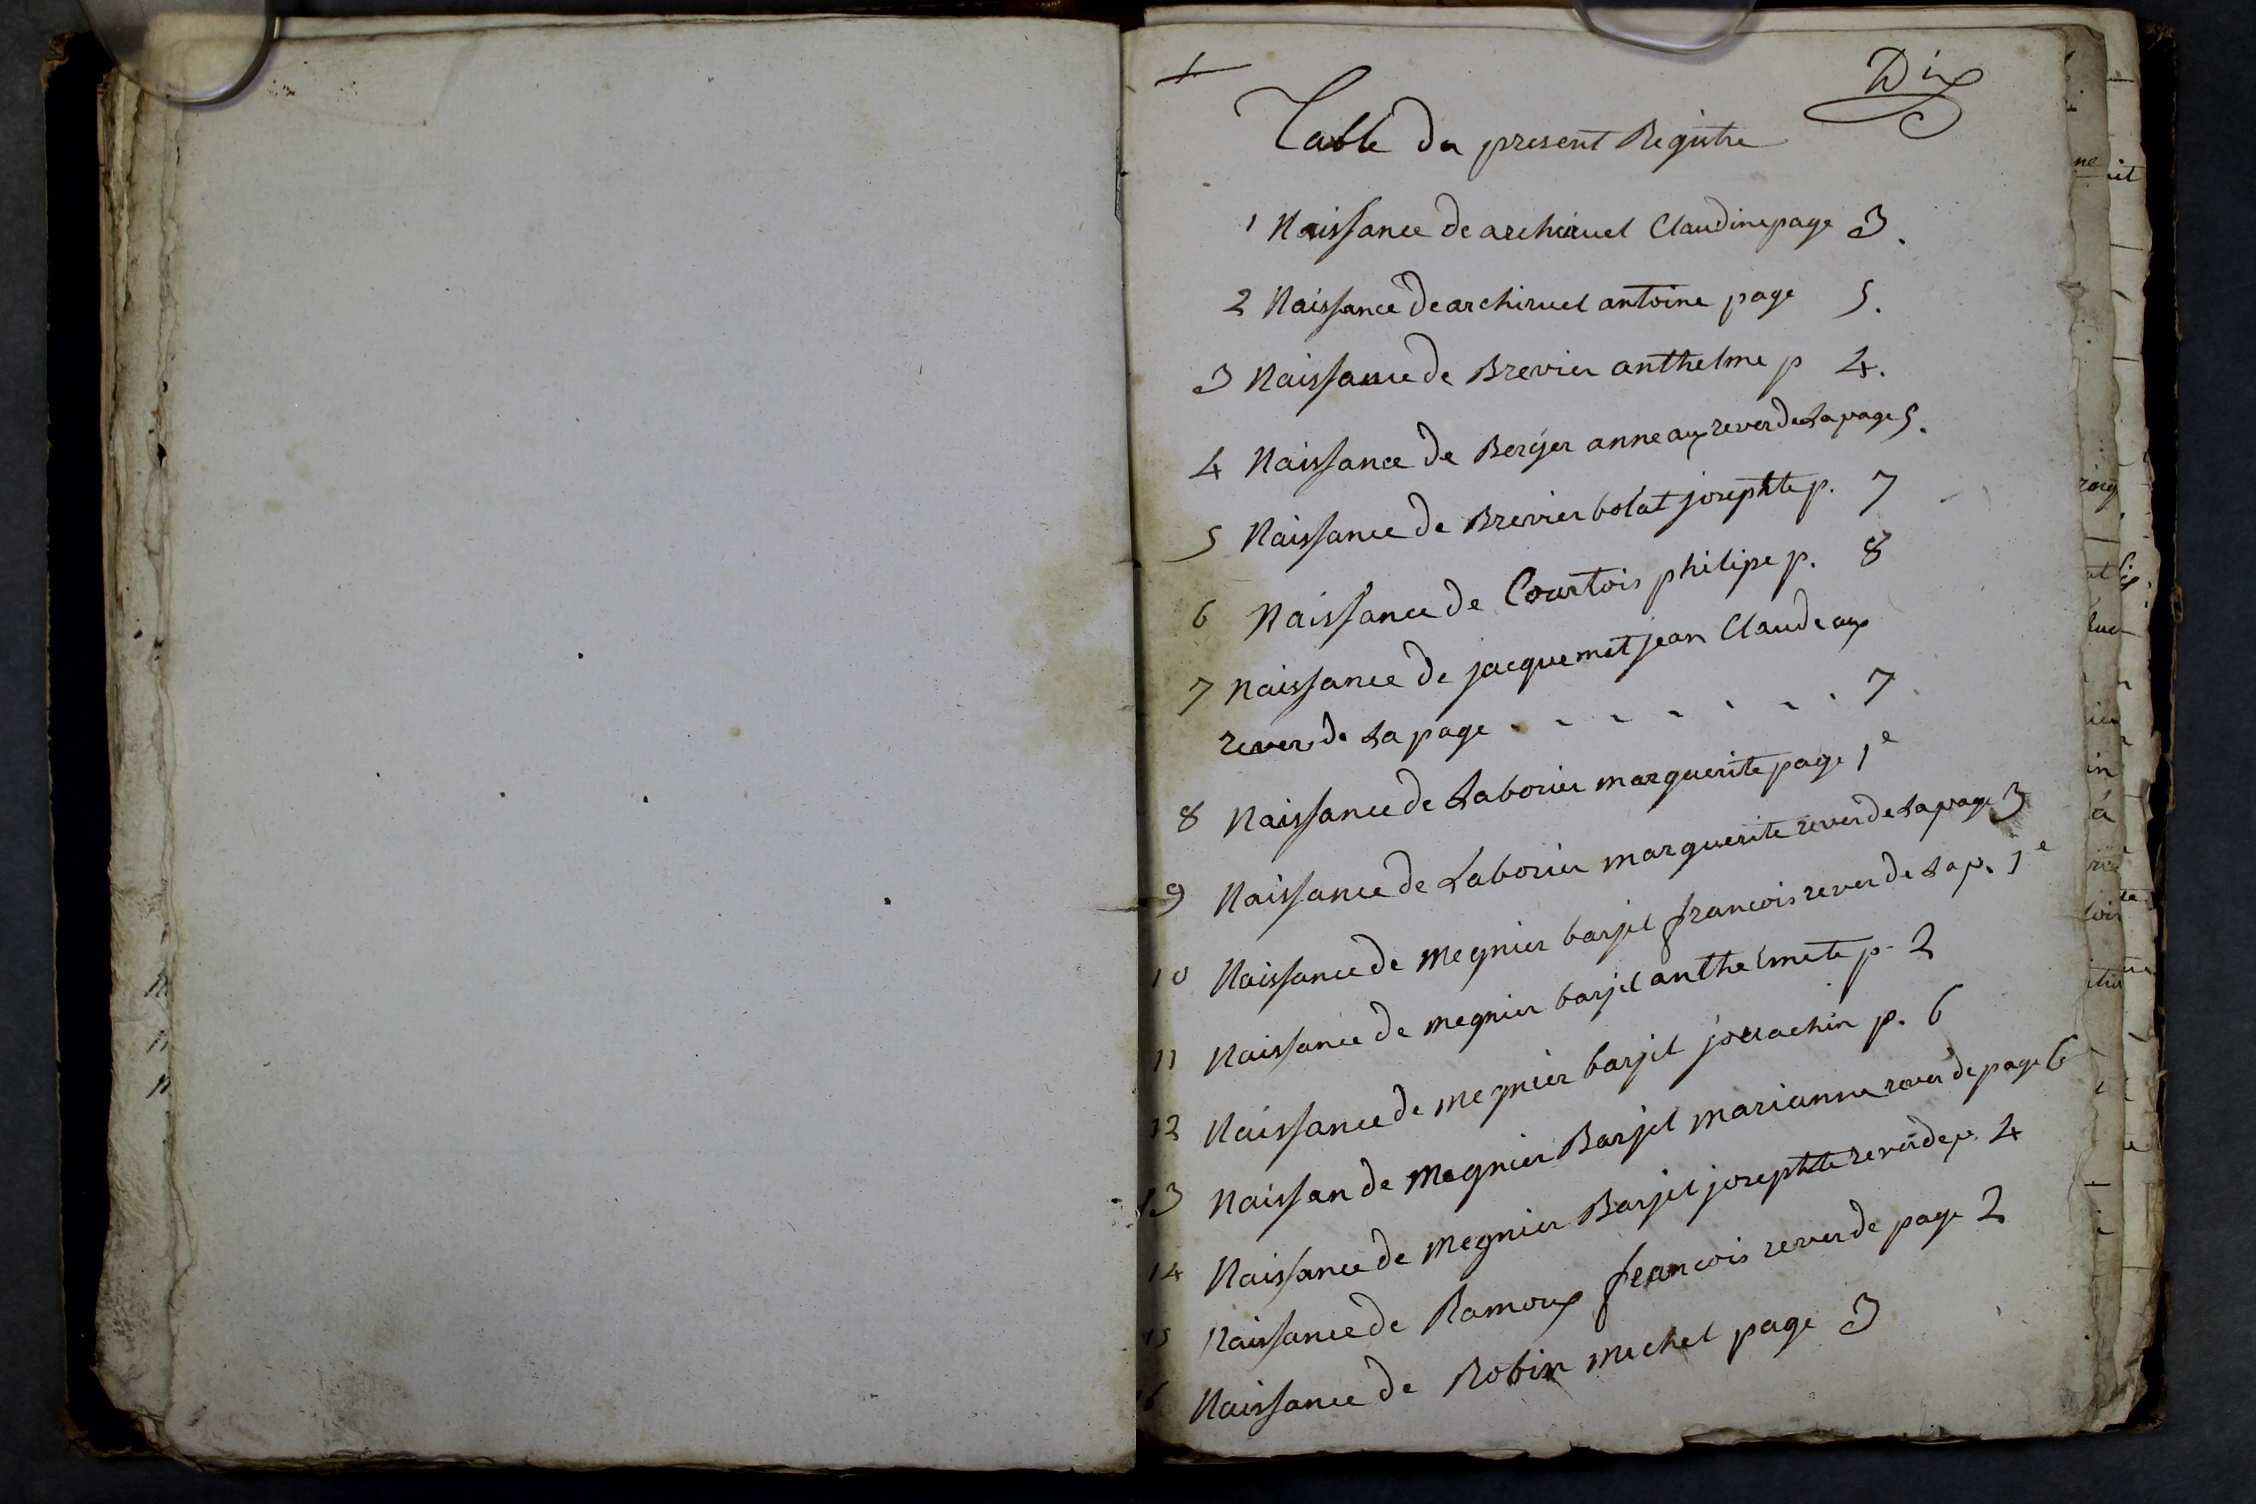 Dix
Table du present Registre
1 Naissance de archiruel Claudine page 3.
2 Naissance de archiruel antoine page 5.
3 Naissance de Brevier anthelme p 4.
4 Naissance de Berger anne aux rever de La page 5.
5 Naissance de Brevier bolat josephte p. 7
6 Naissance de Courtois philipe p. 8
7 naissance de jacquemet jean Claude aux
rever de La page . . . . . . . 7
8 Naissance de Laborier marguerite page 1e
9 Naissance de Laborier marguerite rever de La page 3
10 Naissance de megnier barjel francois rever de La p. 1e
11 Naissance de megnier barjel anthelmete p. 2
12 Naissance de megnier barjel jouachin p. 6
13 Naissan de megnier Barjel marianne rever de page 6
14 Naissance de megnier Barjel josephte rever de p. 4
15 Naissance de Ramoux francois rever de page 2
16 Naissance de Robin michel page 3